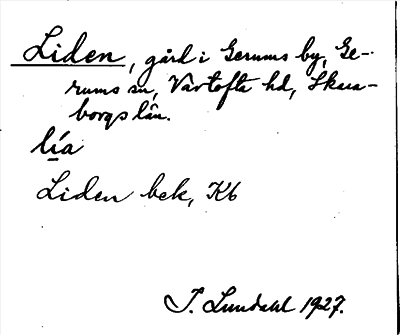 Liden, gård i Gerums by, Ge-
rums sn, Vartofta hd, Skara-
borgs län.
lía
Liden bek, Kb
I. Lundahl 1927.